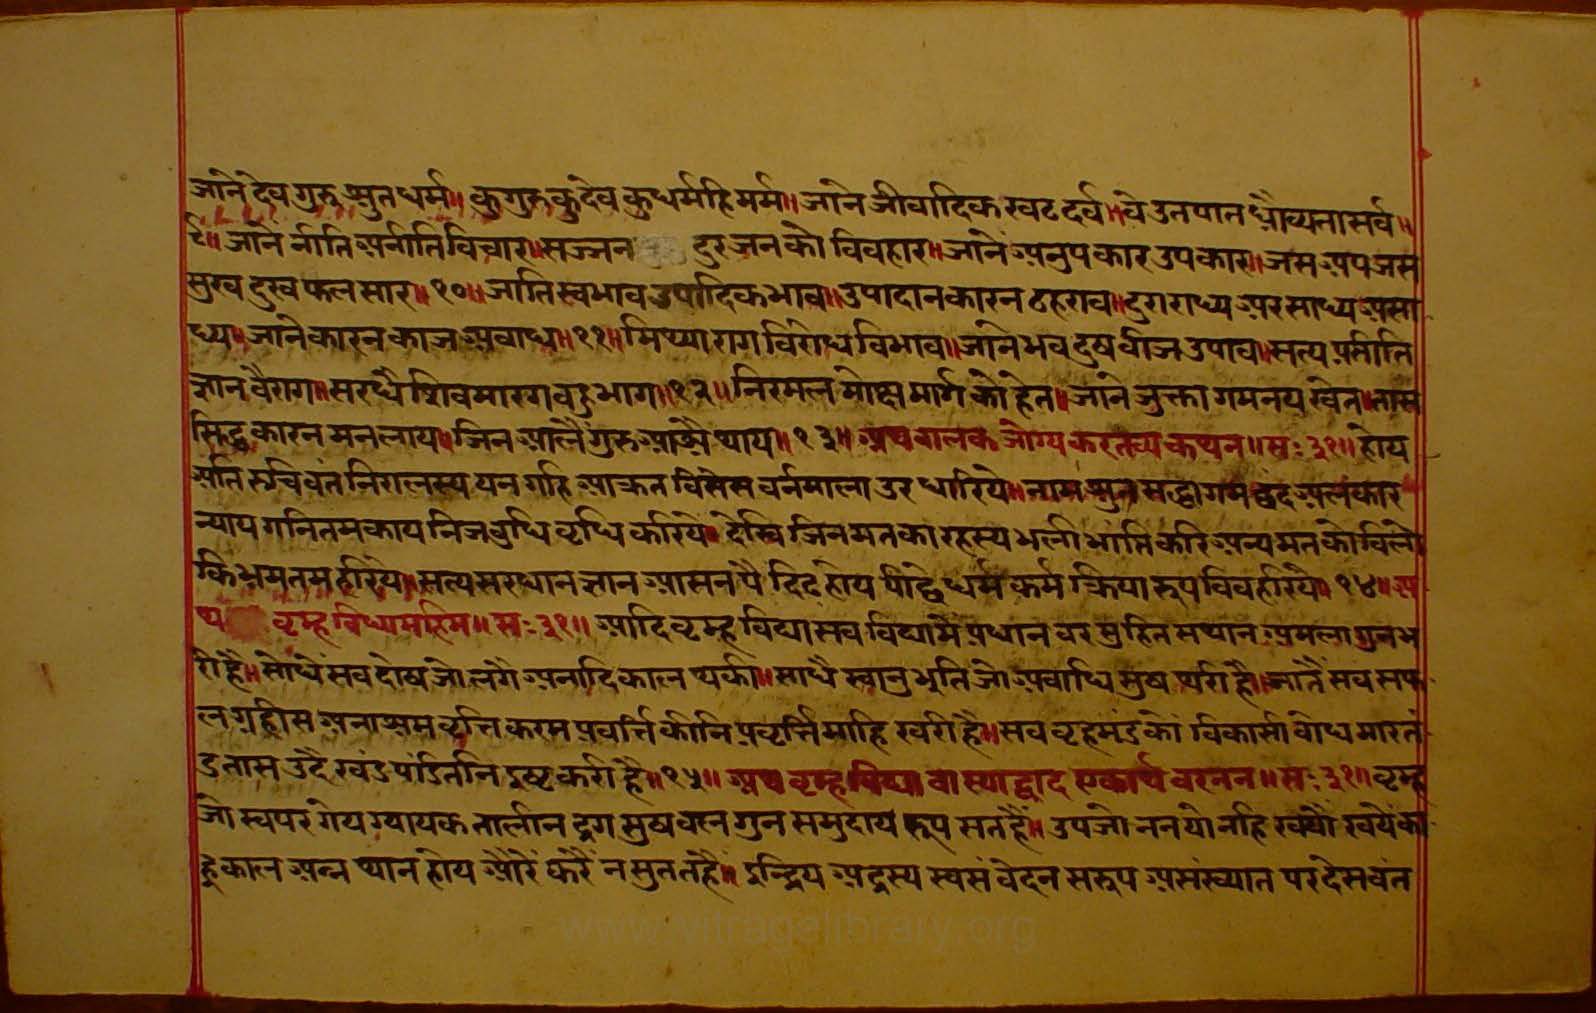 जाने देव गुरु श्रुत धर्म॥ कुगुरु कुदेव कुधर्महि मर्म॥ जाने जीवादिक खट दर्व॥ वे उतपात ध्रौव्यता सर्व॥
९॥ जाने नीति अनीति विचार॥ सज्जन दुरजन को विवहार॥ जाने अनुपकार उपकार॥ जस अपजस
सुख दुख फल सार॥१०॥ जाति स्वभाव उपादिक भाव॥ उपादान कारन ठहराव॥ दुराराध्य अर साध्य असा
ध्य॥ जाने कारन काज अबाध॥११॥ मिथ्या राग विरोध विभाव॥ जाने भव दुष वीज उपाव॥ सत्य प्रतीति
ज्ञान वैराग॥ सरधै शिवमारग वडभाग॥१२॥ निरमल मोक्ष मार्ग को हेत॥ जाने जुक्तागम नय खेत॥ तास
सिद्ध कारन मन लाय॥ जिन आलै गुरु आश्रै थाय॥१३॥ अथ वालक जोग्य करतव्य कथन॥ सः३१॥ होय
अति रुचिवंत निरालस्य यन गहि प्राक्रत विसेस वर्नमाला उर धारिये॥ नाम श्रुत सद्धागम छंद अलंकार
न्याय गनित मकाय निज वुधि वृधि करिये॥ देखि जिनमत का रहस्य भली भांति करि अन्यमत को विलो
कि भ्रमतम हरिये॥ सत्य सरधान ज्ञान आसन पै दिढ होय पीछे धर्म कर्म क्रिया रूप विवहरिये॥१४॥ अ
थ वृम्ह विद्या महिम॥ सः३१॥ आदि वृम्ह विद्या सव विद्या मै प्रधान वर मुहित सथान अमला गुन भ
री है॥ सोधै सव दोष जो लगै अनादि काल थकी॥ साधै स्वानुभूति जो अवाधि सुष थरी है॥ जातै सव सफ
ल ग्रहीस अनाश्रम वृत्ति करम प्रवर्त्ति की निप्रवृत्ति माहि खरी है॥ सव वृहमंड को विकासी वोध मारतं
ड तास उदै खंड पंडितनि दुष्ट करी है॥१५॥ अथ वृम्ह विद्या वा स्याद्वाद एकार्थ वरनन॥ सः३१॥ वृम्ह
जो स्वपर गेय ग्यायक तालीन द्रग सुष वल गुन समुदाय रूप सत है॥ उपजो न नयो नहि खयो खयै का
हू काल अन्न थान होय औरै करै न सुतत है॥ इन्द्रिय अद्रस्य स्वसंवेदन सरूप असंख्यात परदेसवंत
www.vitragelibrary.org